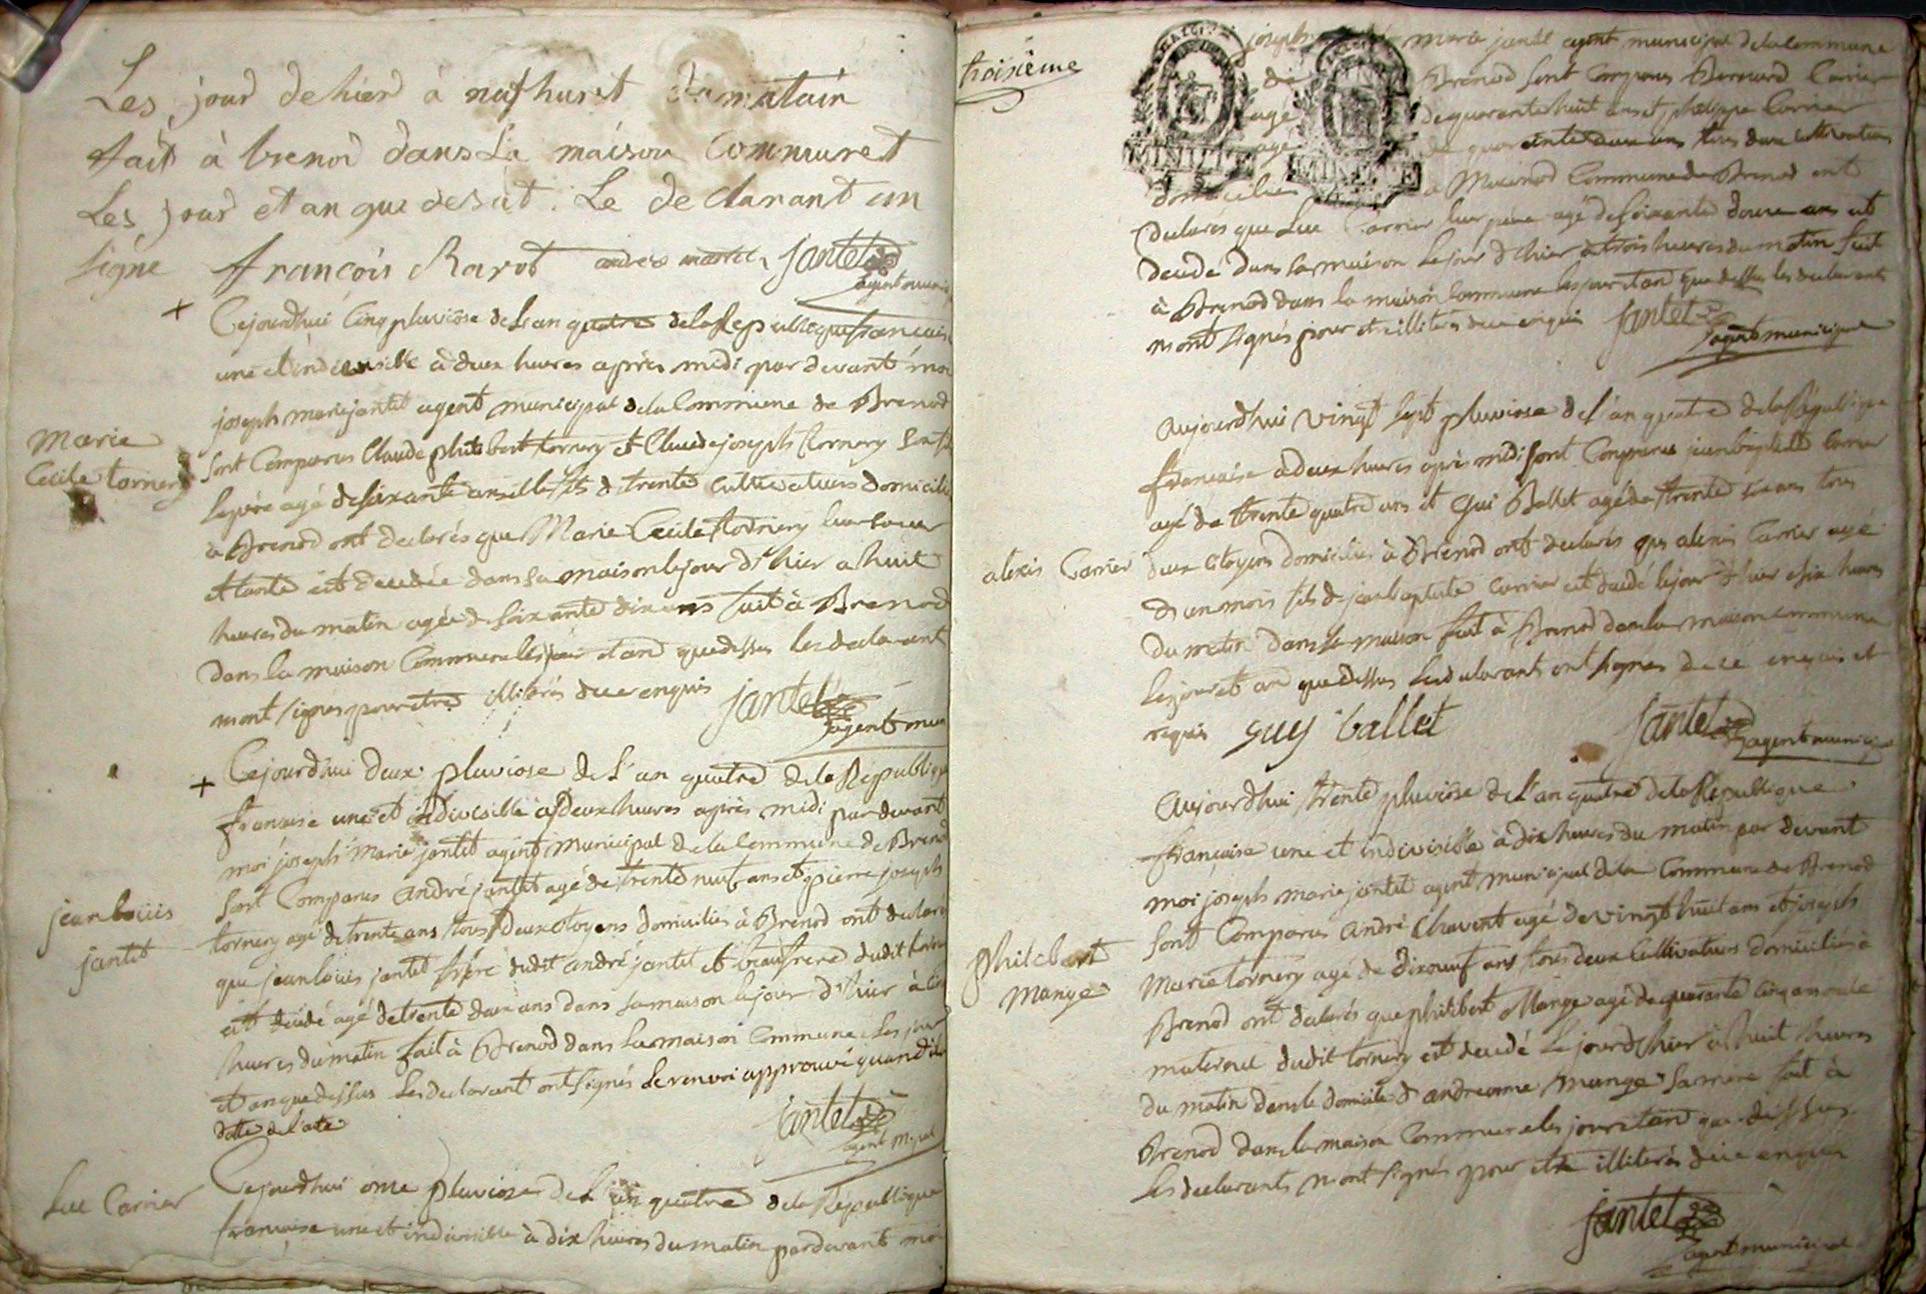 Les jour dehier à nafhuret du matain
fait à brenod dans La maison Commune et
Les jour et an que desut. Le declarant un
signe françois Ravot andré martel Jantet
agent munici
+ Cejourdhui Cinq pluviose de Lan quatre de la Republique francaise
une et indivisible à deux heures après midi par devant moi
joseph marie jantet agent municipal de la Commune de Brenod
Marie
Cecile tornery
sont Comparus Claude philibert tornery et Claude joseph tornery son fils
le père agé de soixante ans et le fils de trente cultivateurs domicilié
à Brenod ont declarés que Marie Cecile tornery leur soeur
et tante est decedée dans sa maison le jour d'hier a huit
heures du matin agée de soixante dix ans fait à Brenod
dans la maison Commune les jour et an que dessus les declarant
n'ont signés pour etre illiterés de ce enquis jantet
agent mun
+ Cejourdhui deux pluviose de l'an quatre de la Républiq
francaise une et indivisible à deux heures après midi par devant
moi joseph Marie jantet agent municipal de la Commune de Brenod
sont Comparus andré jantet agé de trente neuf ans et pierre joseph
jean louis
jantet
tornery agé de trente ans tous deux citoyens domiciliés à Brenod ont declaré
que jean louis jantet frère dudit andré jantet et beaufrere dudit torn
est decedé agé de trente deux ans dans sa maison le jour d'hier à cinq
heures du matin fait à Brenod dans la maison Commune Les jour
et an que dessus les declarant ont signés le renvoi approuvé quand à la
datte de l'acte jantet
agent m.pal
Luc Carrier
Cejourdhui onze pluviose de L'an quatre de la République
francaise une et indivisible à dix heures du matin par devant moi
troisième
joseph marie jantet agent municipal de la Commune
de Brenod sont Comparus Bernard Carrier
agé de quarante huit ans et philippe Carrier
agé de quarante deux ans tous deux cultivateurs
domiciliés à Macinod Commune de Brenod ont
declarés que Luc Carrier leur père agé de soixante douze ans est
decedé dans sa maison le jour d'hier à trois heures du matin fait
à Brenod dans la maison Commune les jour et an que dessus les declarants
n'ont signés pour etre illiterés de ce enquis jantet
agent municipal
aujourdhui vingt sept pluviose de l'an quatre de la République
francaise à deux heures après midi sont Comparus jean baptiste Carrier
agé de trente quatre ans et Gui Ballet agé de trente six ans tous
alexis Carrier
deux citoyens domiciliés à Brenod ont declarés que alexis Carrier agé
d'un mois fils de jean baptiste Carrier est decedé le jour d'hier à six heures
du matin dans sa maison fait à Brenod dans la maison commune
les jour et an que dessus les declarant ont signés de ce enquis et
requis guy ballet Jantet
agent municipal
aujourdhui trente pluviose de l'an quatre de la République
française une et indivisible à dix heures du matin par devant
moi joseph marie jantet agent municipal de la Commune de Brenod
sont Comparus andré Chavent agé de vingt huit ans et joseph
philibert
Mange
Marie tornery agé de dixneuf ans tous deux Cultivateurs domiciliés à
Brenod ont declarés que philibert Mange agé de quarante cinq ans oncle
maternel dudit tornery est decedé Le jour d'hier à huit heures
du matin dans le domicile d'andreanne Mange sa mère fait à
Brenod dans la maison Commune les jour et an que dessus
les declarants n'ont signés pour etre illiterés de ce enquis
jantet
agent municipal